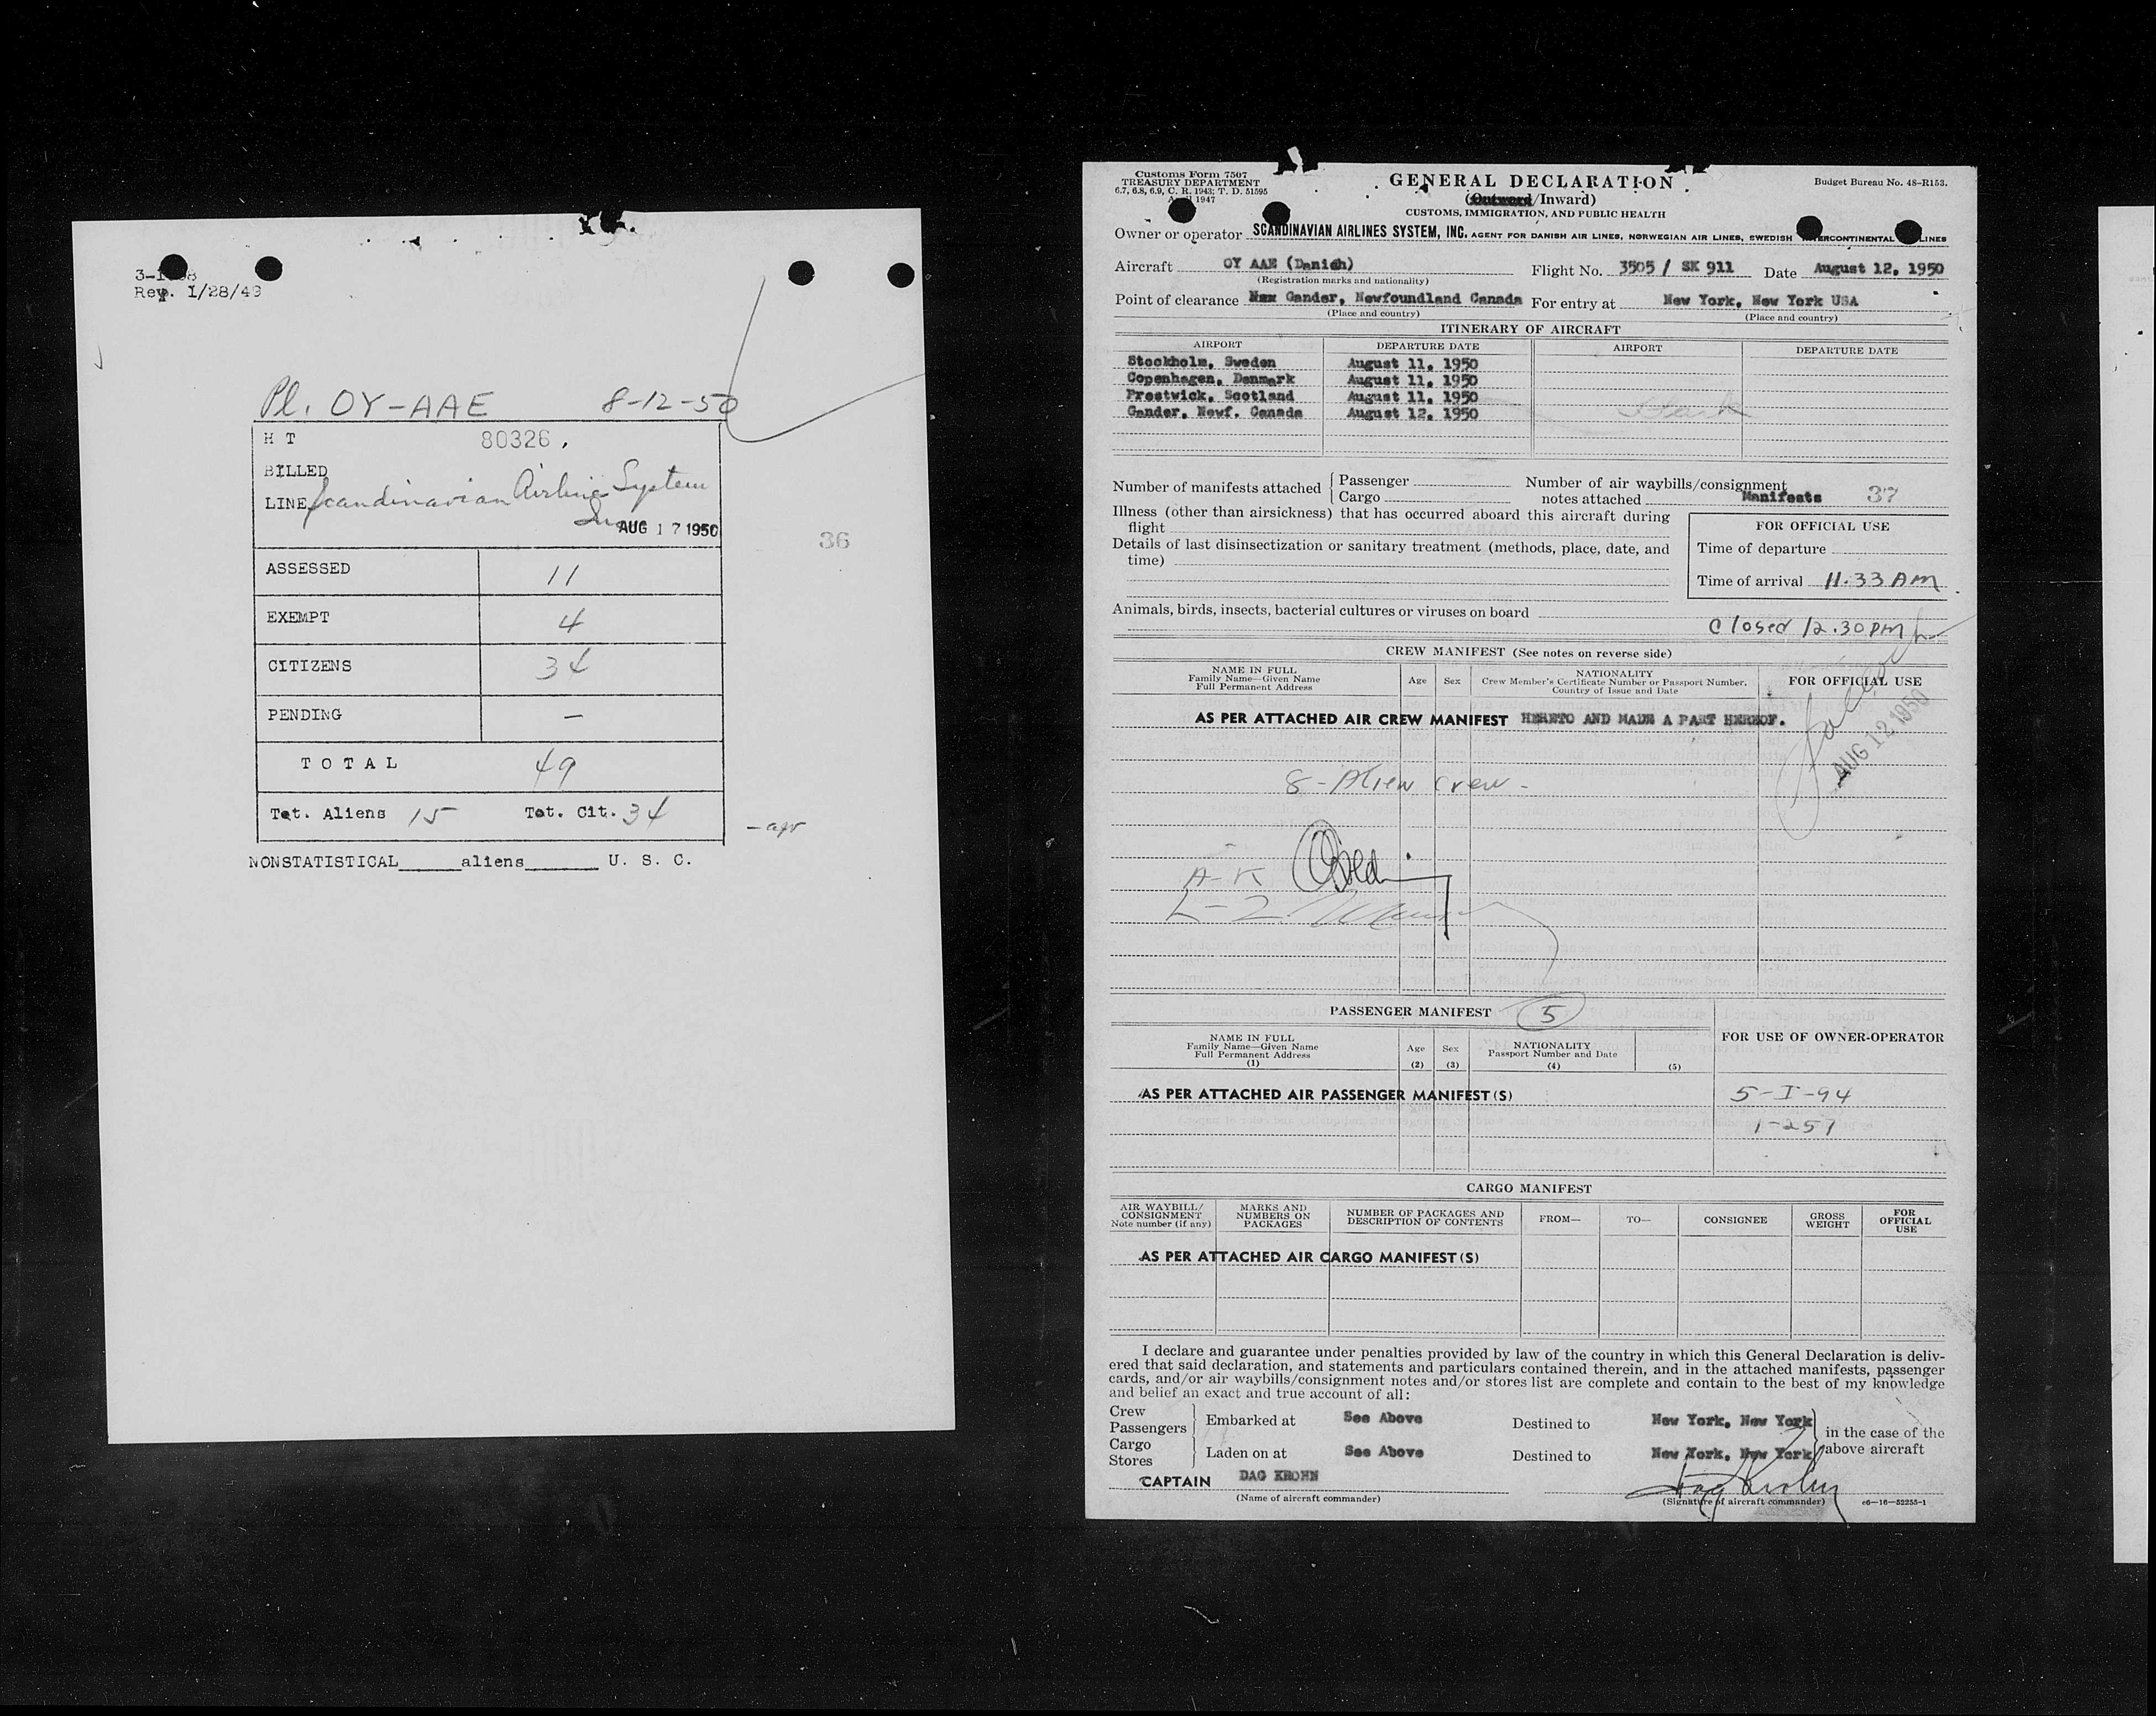 Rev. 1/28/49
Pl. OY-AAE 8-12-50
H T 80326
BILLED
LINE Scandinavian Airlines System
Inc AUG 17 1950
36
ASSESSED 11
EXEMPT 4
CITIZENS 34
PENDING —
TOTAL 49
Tot. Aliens 15 Tot. Cit. 34
NONSTATISTICAL_____aliens______ U. S. C.
Customs Form 7507
TREASURY DEPARTMENT
6.7, 6.8, 6.9, C. R. 1943; T. D. 51595
1947
GENERAL DECLARATION
(Outward/Inward)
CUSTOMS, IMMIGRATION, AND PUBLIC HEALTH
Budget Bureau No. 48-R153.
Owner or operator SCANDINAVIAN AIRLINES SYSTEM, INC. AGENT FOR DANISH AIR LINES, NORWEGIAN AIR LINES, SWEDISH INTERCONTINENTAL LINES
Aircraft OY AAE (Danish) Flight No. 3505 / SK 911 Date August 12, 1950
(Registration marks and nationality)
Point of clearance Gander, Newfoundland Canada For entry at New York, New York USA
(Place and country) (Place and country)
ITINERARY OF AIRCRAFT
AIRPORT DEPARTURE DATE AIRPORT DEPARTURE DATE
Stockholm, Sweden August 11, 1950
Copenhagen, Denmark August 11, 1950
Prestwick, Scotland August 11, 1950
Gander, Newf. Canada August 12, 1950
Number of manifests attached { Passenger
Cargo
Number of air waybills/consignment
notes attached Manifests 37
Illness (other than airsickness) that has occurred aboard this aircraft during
flight
Details of last disinsectization or sanitary treatment (methods, place, date, and
time)
FOR OFFICIAL USE
Time of departure
Time of arrival 11.33 AM
Animals, birds, insects, bacterial cultures or viruses on board
Closed 12.30 PM
CREW MANIFEST (See notes on reverse side)
NAME IN FULL
Family Name—Given Name
Full Permanent Address
Age Sex
NATIONALITY
Crew Member's Certificate Number or Passport Number,
Country of Issue and Date
FOR OFFICIAL USE
AS PER ATTACHED AIR CREW MANIFEST HERETO AND MADE A PART HEREOF.
AUG 12 1950
8 - Alien Crew -
A-K
L-Z
PASSENGER MANIFEST 5
NAME IN FULL
Family Name—Given Name
Full Permanent Address
(1)
Age
(2)
Sex
(3)
NATIONALITY
Passport Number and Date
(4)
(5)
FOR USE OF OWNER-OPERATOR
AS PER ATTACHED AIR PASSENGER MANIFEST(S)
5-I-94
1-257
CARGO MANIFEST
AIR WAYBILL/
CONSIGNMENT
Note number (if any)
MARKS AND
NUMBERS ON
PACKAGES
NUMBER OF PACKAGES AND
DESCRIPTION OF CONTENTS
FROM—
TO—
CONSIGNEE
GROSS
WEIGHT
FOR
OFFICIAL
USE
AS PER ATTACHED AIR CARGO MANIFEST(S)
I declare and guarantee under penalties provided by law of the country in which this General Declaration is deliv-
ered that said declaration, and statements and particulars contained therein, and in the attached manifests, passenger
cards, and/or air waybills/consignment notes and/or stores list are complete and contain to the best of my knowledge
and belief an exact and true account of all:
Crew
Passengers } Embarked at See Above Destined to New York, New York
Cargo
Stores } Laden on at See Above Destined to New York, New York
in the case of the
above aircraft
CAPTAIN DAG KROHN Dag Krohn
(Name of aircraft commander) (Signature of aircraft commander) c6—16—52255-1